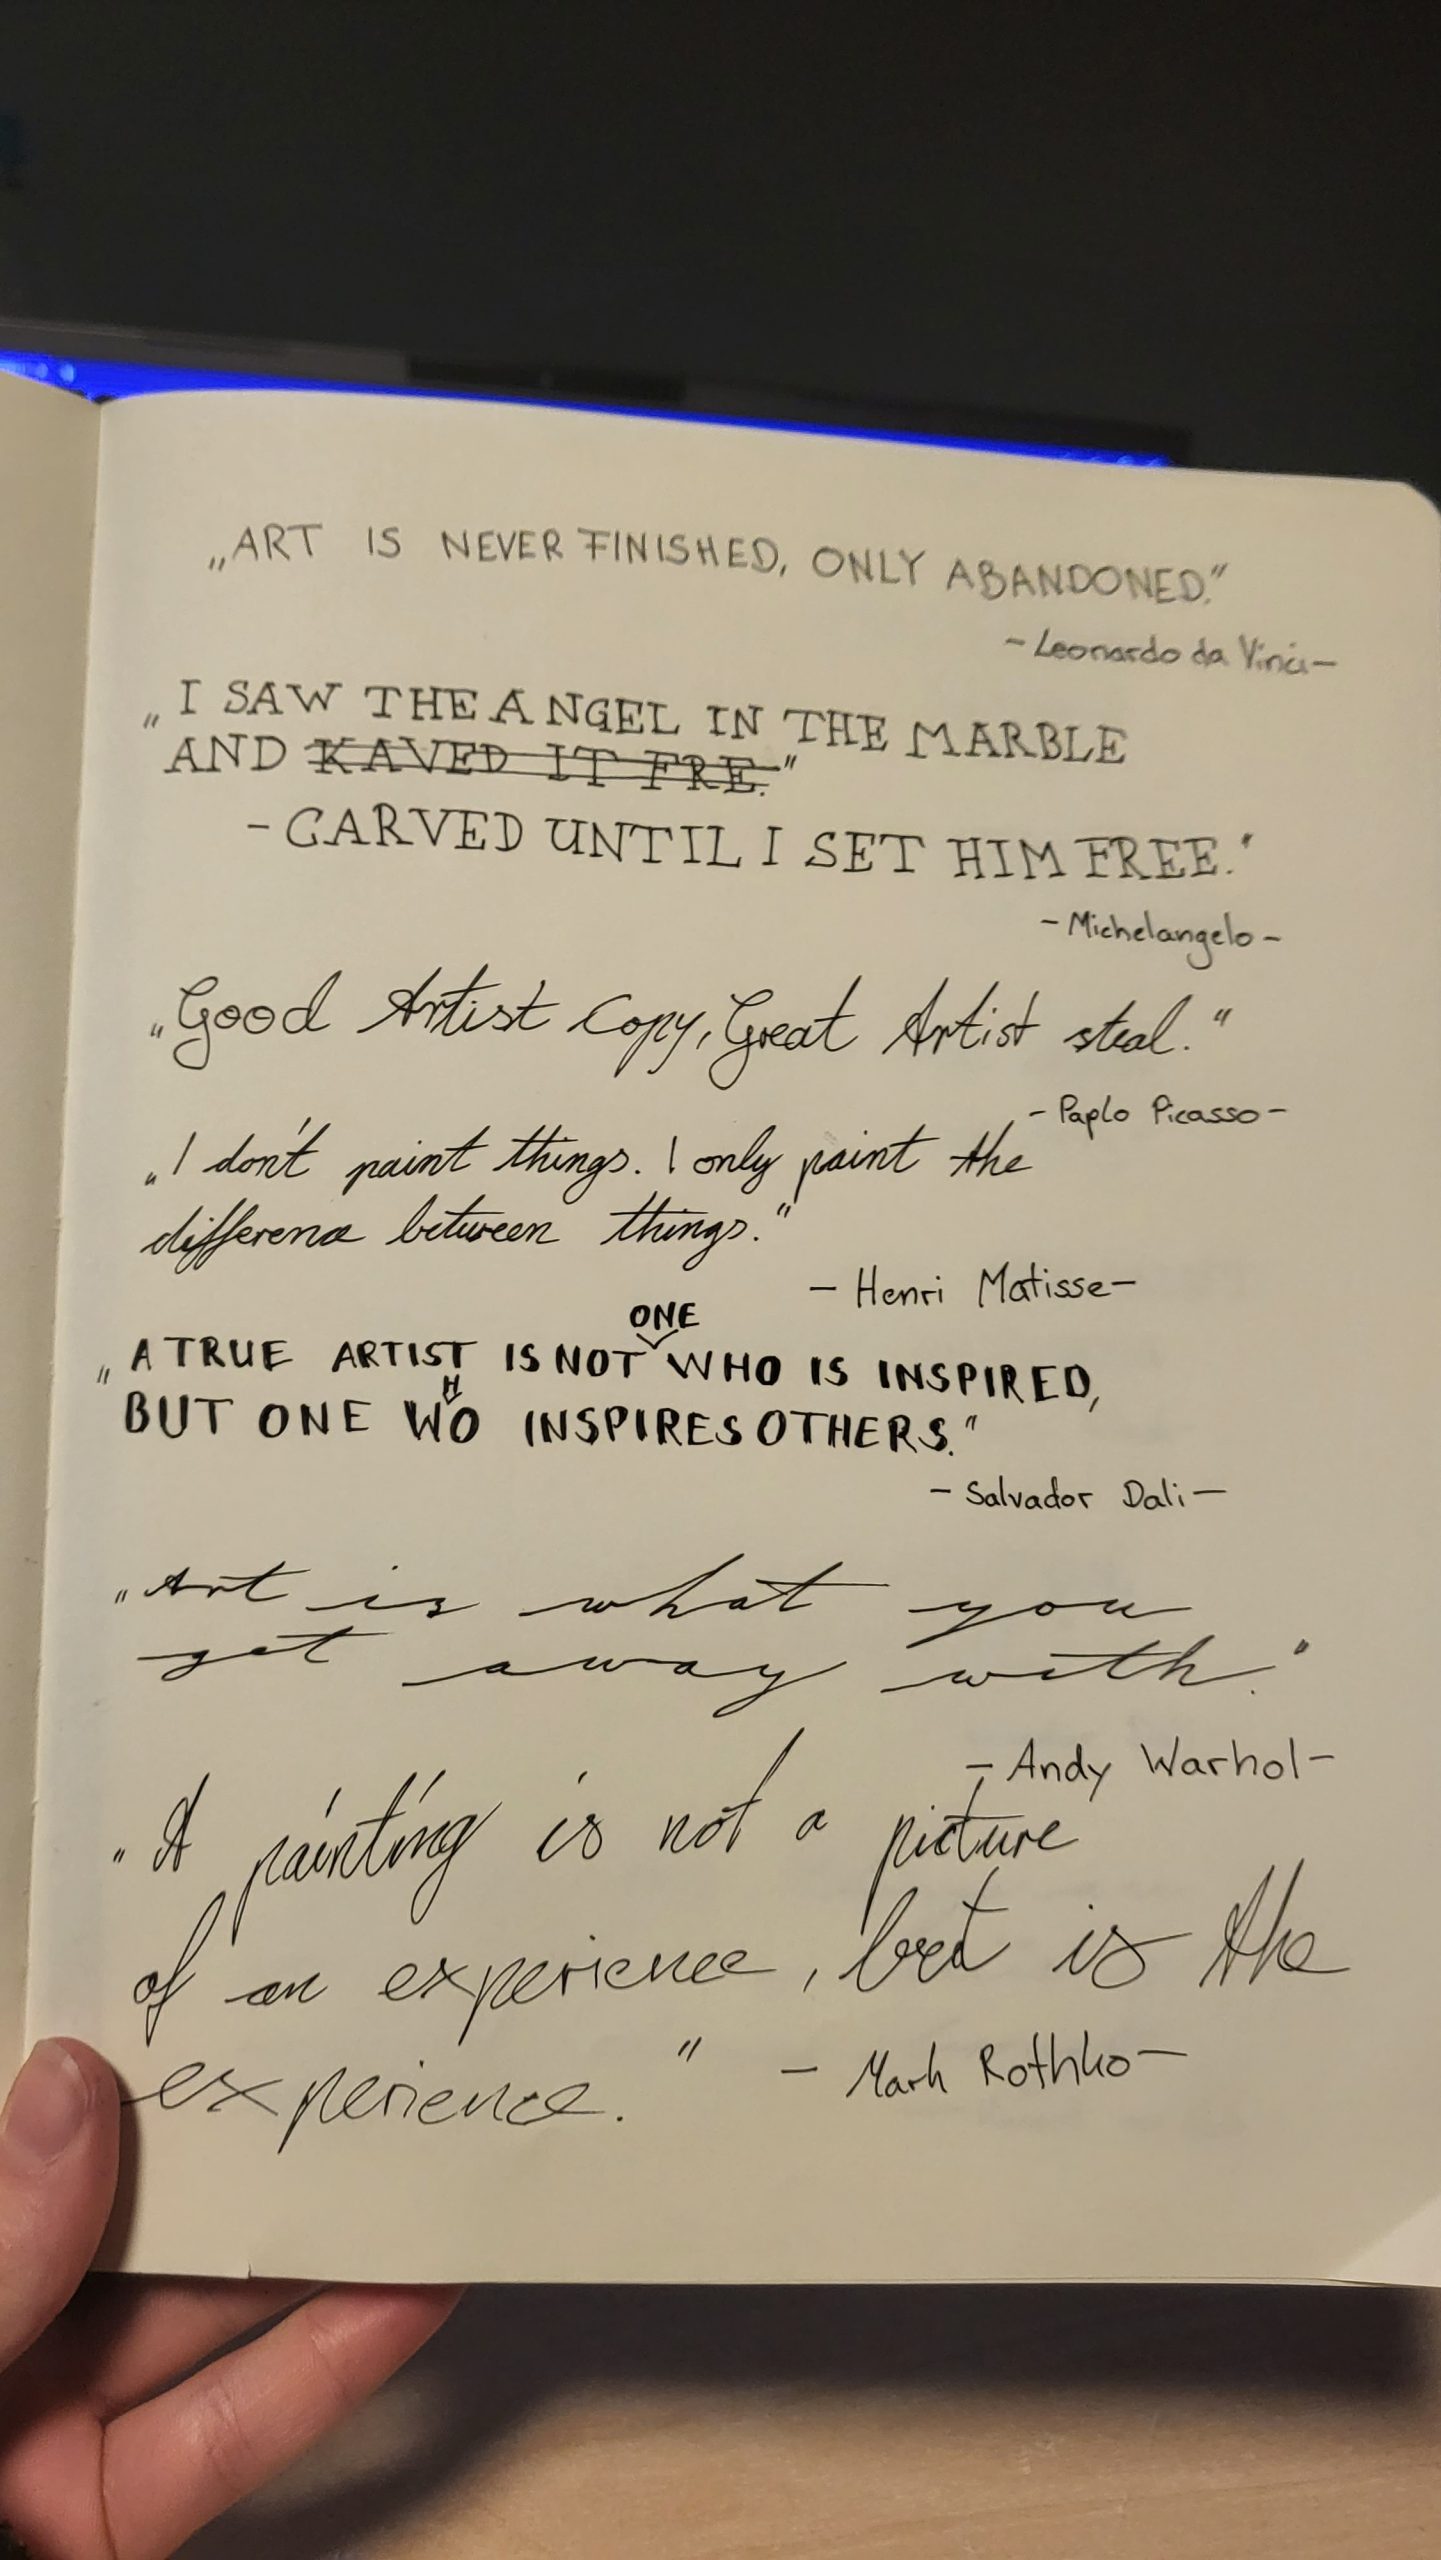 „ART IS NEVER FINISHED, ONLY ABANDONED."
-Leonardo da Vinci-
„I SAW THE ANGEL IN THE MARBLE
AND KAVED IT FRE."
- CARVED UNTIL I SET HIM FREE."
-Michelangelo-
„Good Artist Copy, Great Artist steal."
-Paplo Picasso-
„I don't paint things. I only paint the
difference between things."
- Henri Matisse-
ONE
„A TRUE ARTIST IS NOT WHO IS INSPIRED,
H
BUT ONE WO INSPIRES OTHERS."
- Salvador Dali-
"Art is what you
get away with."
- Andy Warhol-
"A painting is not a picture
of an experience, but is the
experience." - Mark Rothko-